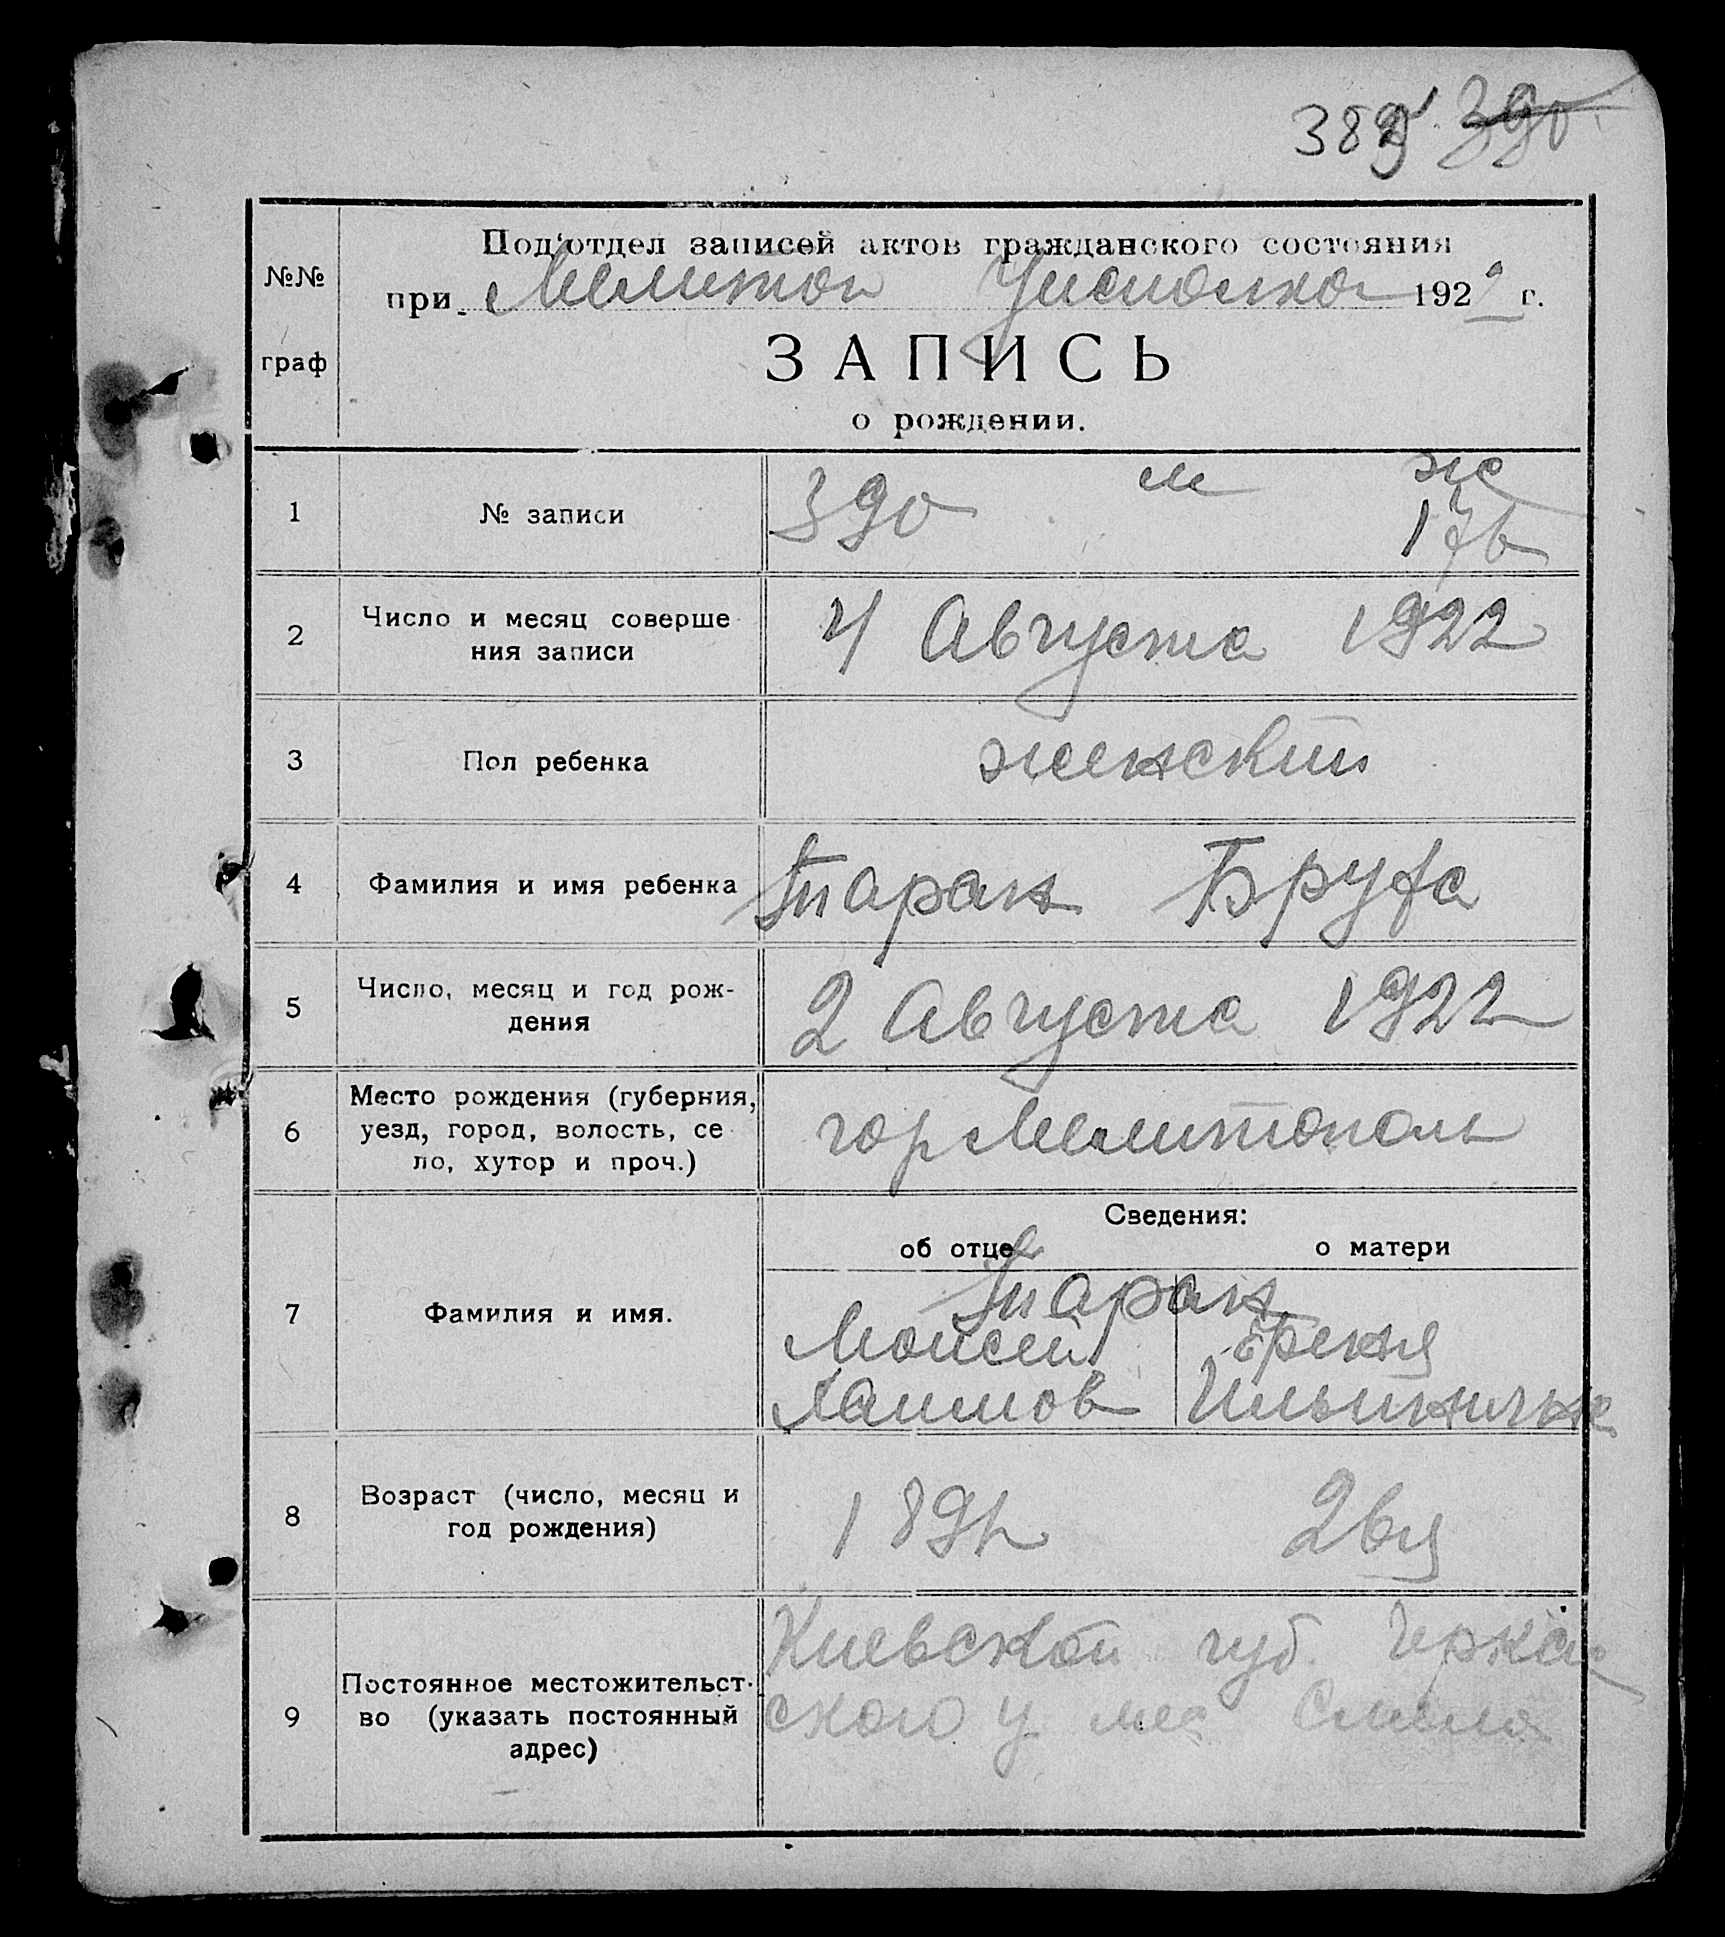 389 390
№№ граф
Под'отдел записей актов гражданского состояния
при Мелитоп Уисполко 1922 г.
ЗАПИСЬ
о рождении.
1 № записи 390 м ж
176
2 Число и месяц соверше
ния записи
4 Августа 1922
3 Пол ребенка женский
4 Фамилия и имя ребенка Таран Бруха
5 Число, месяц и год рож-
дения
2 Августа 1922
6 Место рождения (губерния,
уезд, город, волость, се
ло, хутор и проч.)
гор Мелитополь
Сведения:
об отце о матери
7 Фамилия и имя.
Таран
Моисей
Хаимов
8 Возраст (число, месяц и
год рождения)
9 Постоянное местожительст-
во (указать постоянный
адрес)
Киевской губ. Черкас
ского у мес Смела